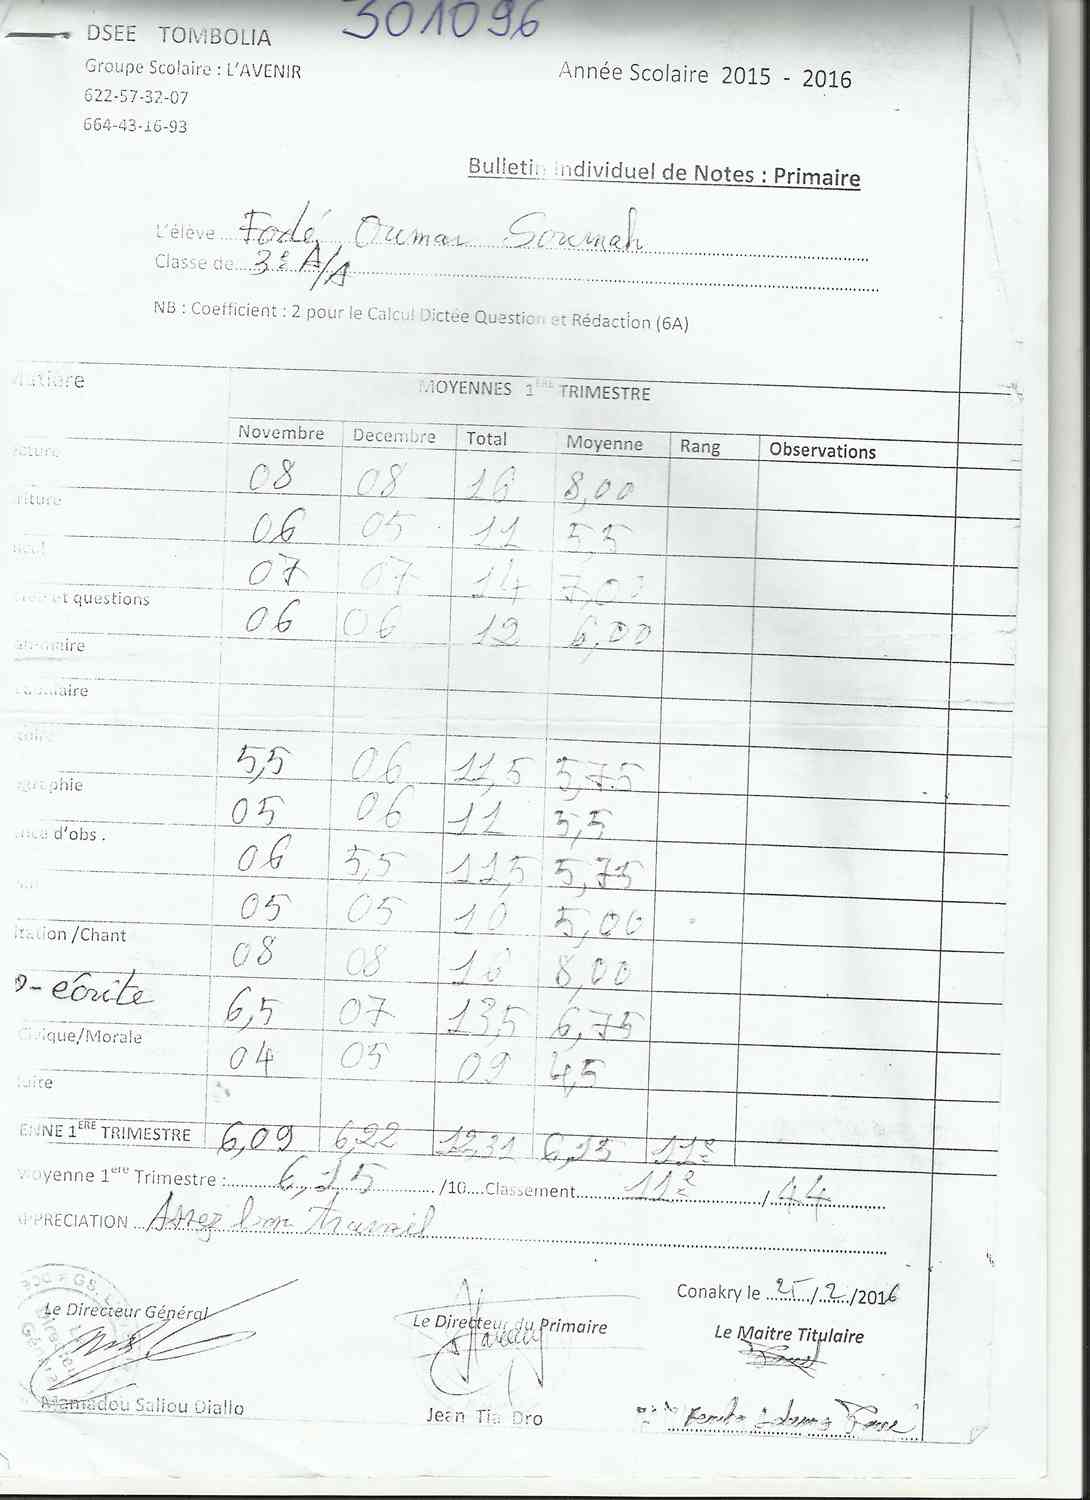 301096
DSEE TOMBOLIA
Groupe Scolaire : L'AVENIR
Année Scolaire 2015 - 2016
622-57-32-07
664-43-16-93
Bulletin Individuel de Notes : Primaire
L'élève Fodé Oumar Soumah
Classe de 3è A/A
NB : Coefficient : 2 pour le Calcul Dictée Question et Rédaction (6A)
Matière MOYENNES 1ERE TRIMESTRE
Novembre Decembre Total Moyenne Rang Observations
cture 08 08 16 8,00
riture 06 05 11 5,5
07 07 14 7,00
et questions 06 06 12 6,00
maire
laire
toire 5,5 06 11,5 5,75
graphie 05 06 11 5,5
nce d'obs . 06 5,5 11,5 5,75
05 05 10 5,00
itation /Chant 08 08 16 8,00
écrite 6,5 07 13,5 6,75
Civique/Morale 04 05 09 4,5
uite
ENNE 1ERE TRIMESTRE 6,09 6,22 12,31 6,15 11è
Moyenne 1ere Trimestre : 6,15 /10....Classement 11è / 44
APPRECIATION Assez bon travail
Conakry le 25/2/2016
Le Directeur Général Le Directeur du Primaire Le Maitre Titulaire
Mamadou Saliou Diallo Jean Tia Dro